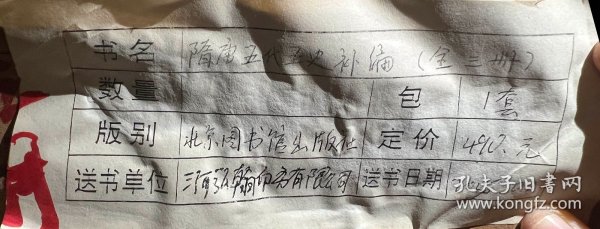 书名 隋唐五代五史补编（全三册）
数量 包 1套
版别 北京图书馆出版社 定价 490.元
送书单位 三河弘翰印务有限公司 送书日期
孔夫子旧书网
www.kongfz.com